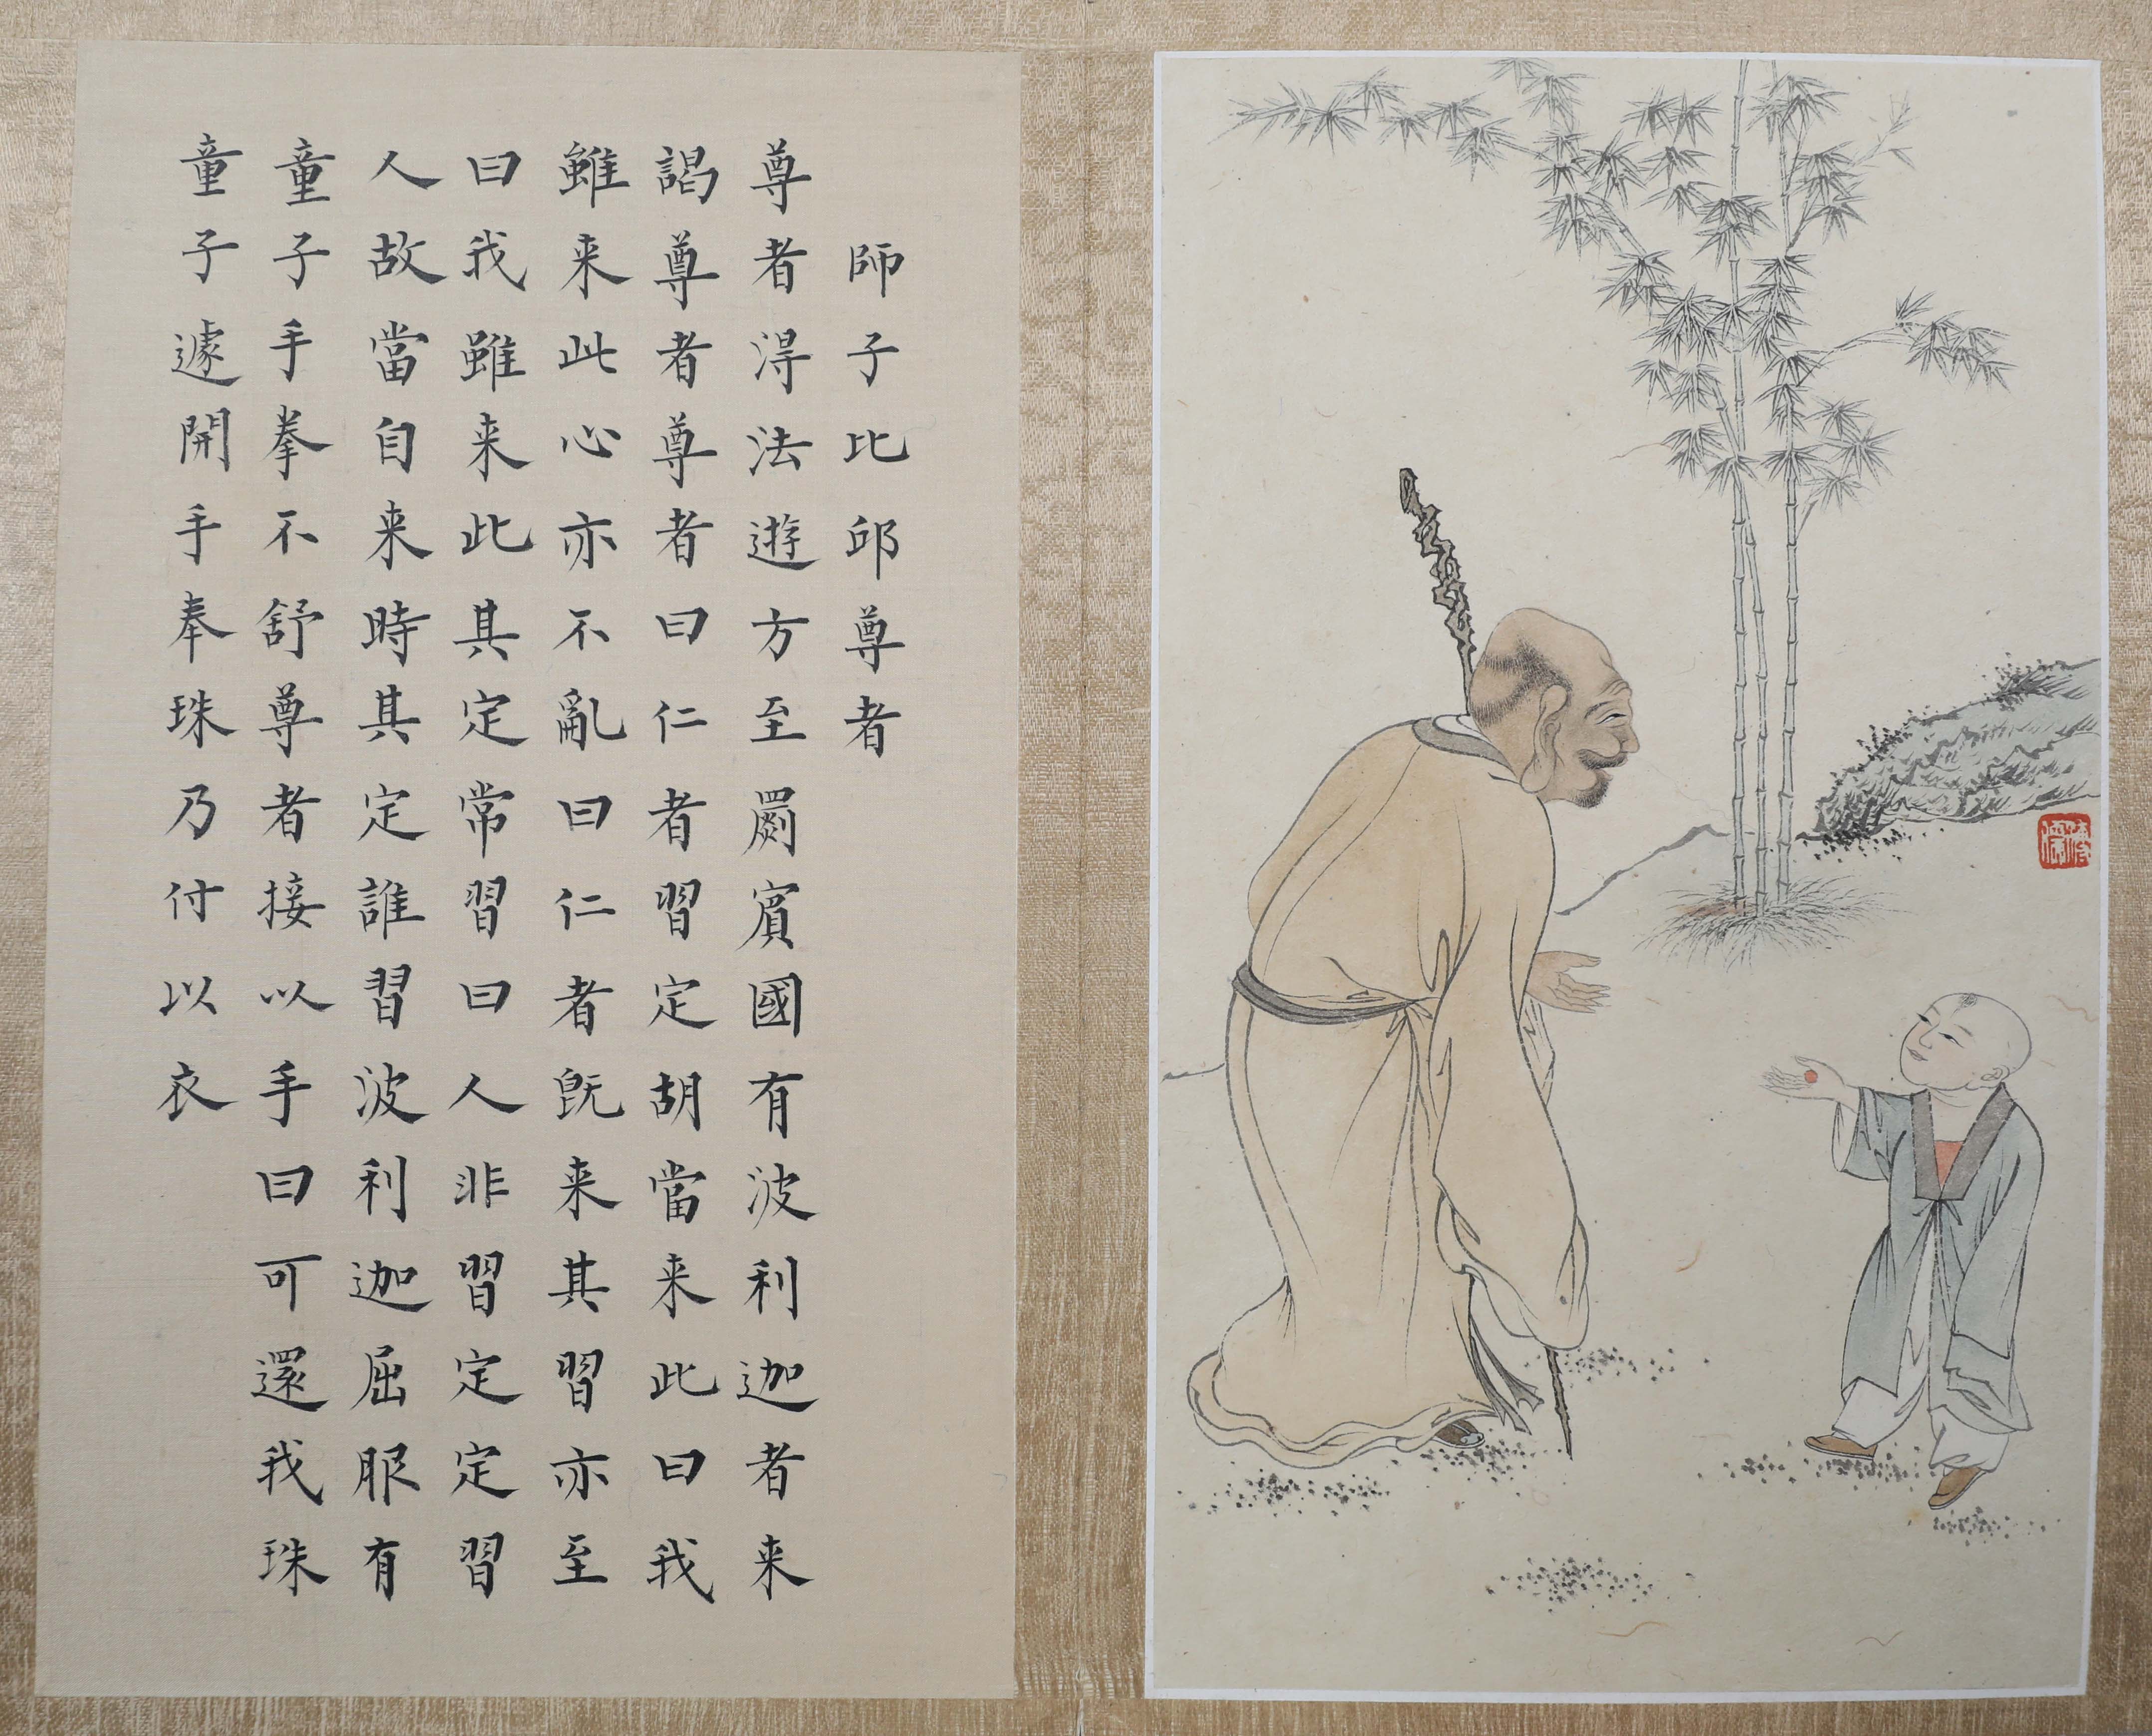 師子比邱尊者
尊者淂法遊方至罽賔國有波利迦者来
謁尊者尊者曰仁者習定胡當来此曰我
雖来此心亦不亂曰仁者旣来其習亦至
曰我雖来此其定常習曰人非習定定習
人故當自来時其定誰習波利迦屈服有
童子手拳不舒尊者接以手曰可還我珠
童子遽開手奉珠乃付以衣